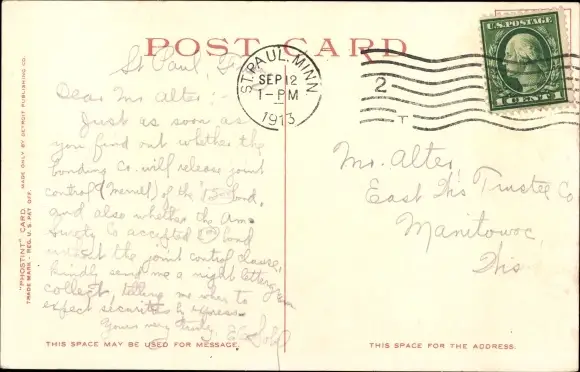 POST CARD
U.S. POSTAGE
1 CENT 1
ST. PAUL, MINN
SEP 12
1-PM
1913
2
T
"PHOSTINT" CARD
TRADE MARK - REG. U.S. PAT. OFF.
MADE ONLY BY DETROIT PUBLISHING CO.
St Paul,
Dear Mr Alter:-
Just as soon as
you find out whether the
bonding Co. will release joint
control (Merrill) of the bond,
and also whether the Am.
Surety Co accepted bond
without the joint control clause,
kindly send me a night lettergram
collect, telling me when to
expect securities by express.
Yours very truly,
Mr. Alter,
East Wis Trustee Co
Manitowoc,
Wis
THIS SPACE MAY BE USED FOR MESSAGE.
THIS SPACE FOR THE ADDRESS.